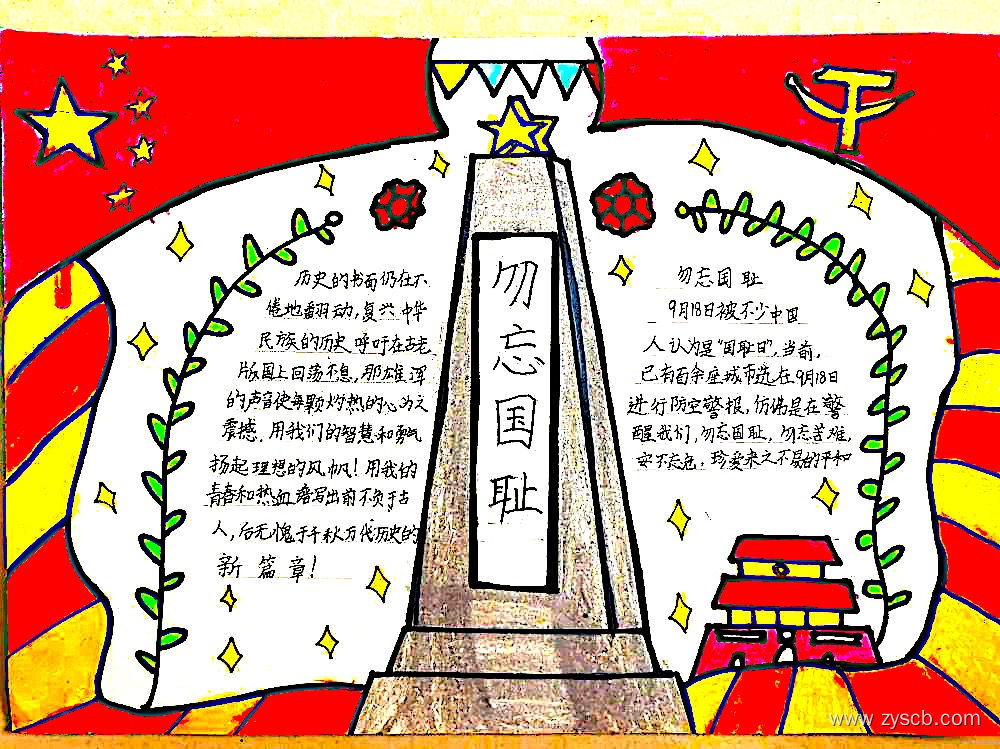 勿忘国耻
历史的书面仍在不
倦地翻动,复兴中华
民族的历史呼吁在古老
版图上回荡不息,那雄浑
的声音使每颗灼热的心为之
震撼,用我们的智慧和勇气
扬起理想的风帆!用我们的
青春和热血谱写出前不负于古
人,后无愧于千秋万代历史的
新篇章!
勿忘国耻
9月18日被不少中国
人认为是"国耻日",当前,
已有百余座城市选在9月18日
进行防空警报,仿佛是在警
醒我们,勿忘国耻,勿忘苦难,
安不忘危,珍爱来之不易的平和
www.zyscb.com